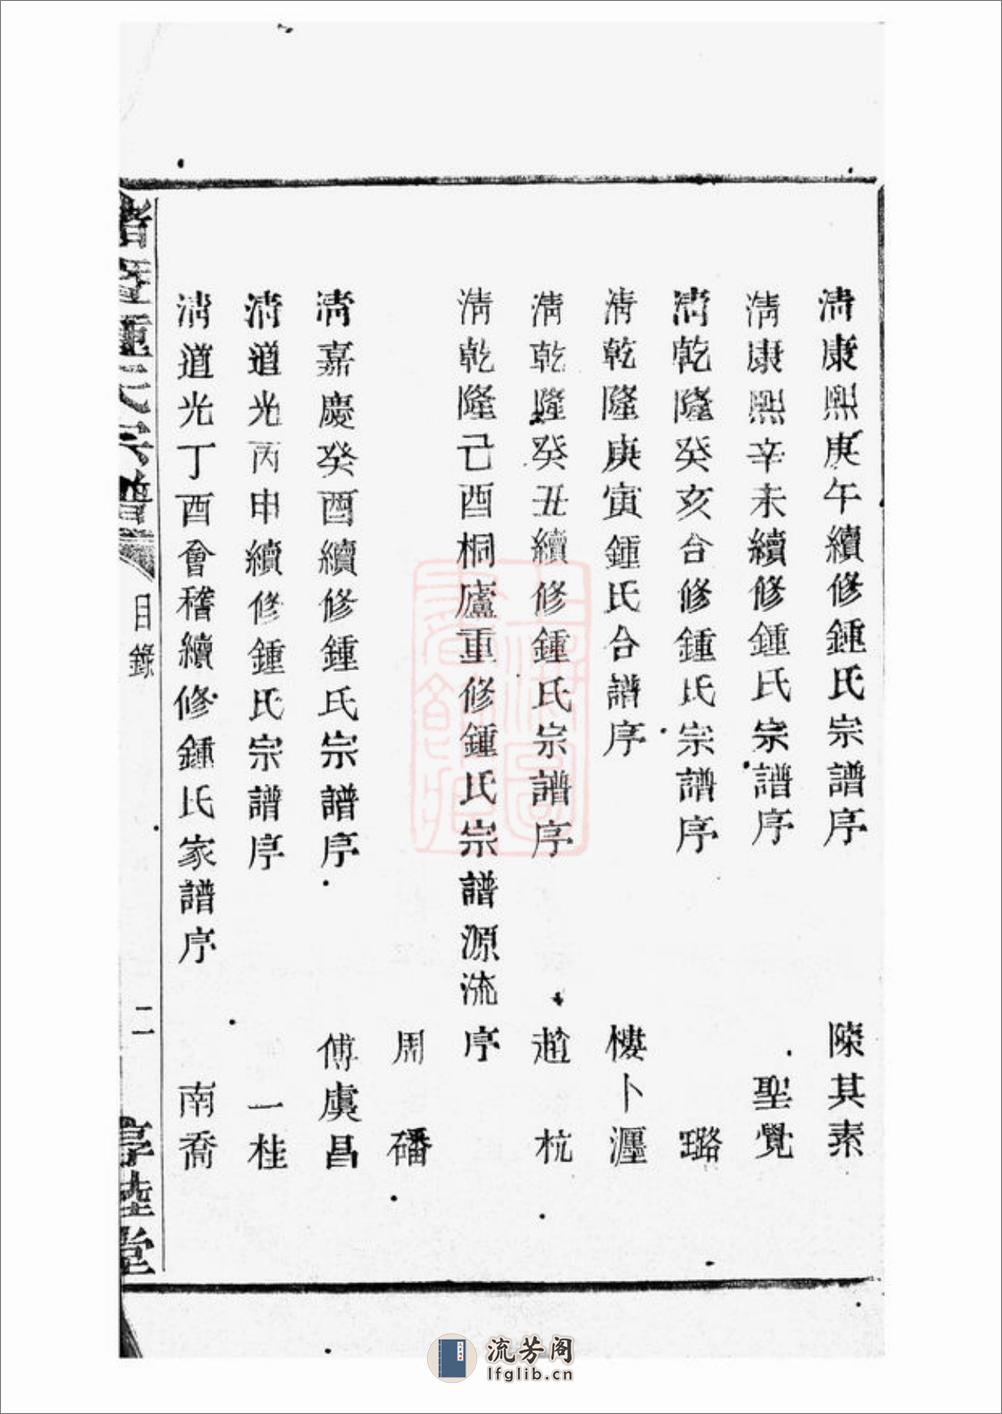 清康熙庚午續修鍾氏宗譜序 陳其素
清康熙辛未續修鍾氏宗譜序 聖覺
清乾隆癸亥合修鍾氏宗譜序 璐
清乾隆庚寅鍾氏合譜序 樓卜瀍
清乾隆癸丑續修鍾氏宗譜序 趙杭
清乾隆己酉桐廬重修鍾氏宗譜源流序
周磻
清嘉慶癸酉續修鍾氏宗譜序 傅虞昌
清道光丙申續修鍾氏宗譜序 一桂
清道光丁酉會稽續修鍾氏家譜序 南喬
諸暨鍾氏宗譜 目錄 二 惇睦堂
流芳阁
lfglib.cn